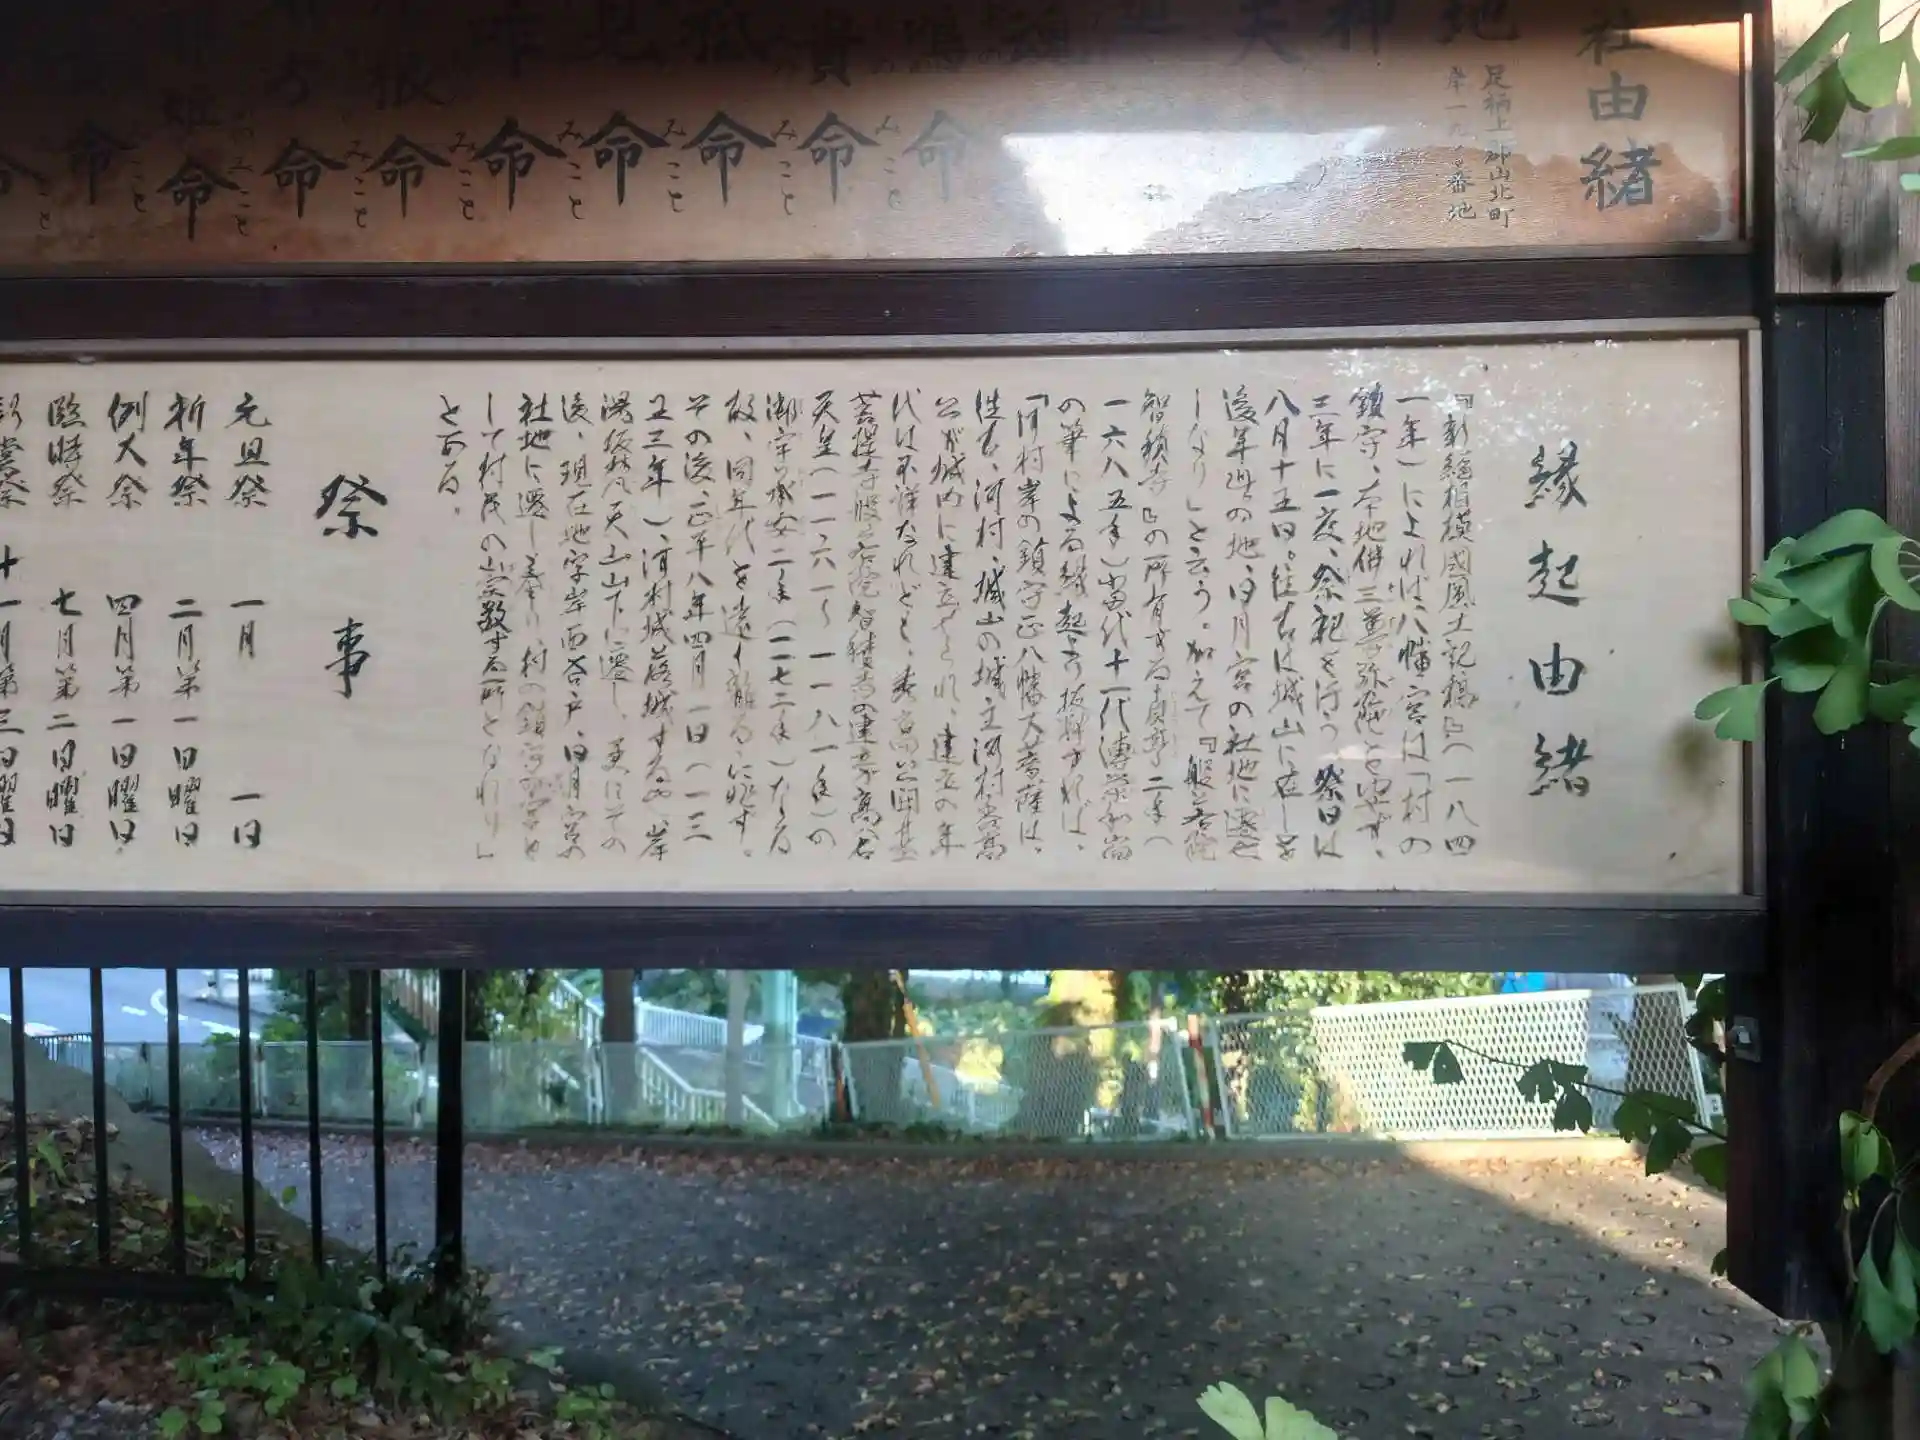 社由緒
足柄上郡山北町
岸一九
番地
地
神
天
魂
鳴
貴 命 みこと
狐 命 みこと
見 命 みこと
命 みこと
根 命 みこと
命 みこと
姫 命 みこと
命 みこと
縁起由緒
『新編相模國風土記稿』(一八四
一年)によれば、八幡宮は「村の
鎮守、本地佛三尊弥陀と
三年に一度、祭祀を行う 祭日は
八月十五日。往古は城山に在しを
後年此の地、白月宮の社地に遷せ
しなり」と云う。加えて『般若院
智積寺』の所有する貞享二年(
一六八五年)当代十一代傳榮和尚
の筆による縁起より抜粋すれば、
「河村岸の鎮守正八幡大菩薩は、
往古、河村、城山の城主河村秀高
公が城内に建立され、建立の年
代は不詳なれども、秀高公開基
菩提寺般若院智積寺の建立が高倉
天皇(一一六一〜一一八一年)の
御宇の承安二年(一一七二年)なる
故、同年代を遠く離る に非ず。
その後、正平八年四月一日(一三
五三年)、河村城落城するや、岸
湯坂 天山山下に遷し、更にその
後、現在地字岸西谷戸、白月宮の
社地に遷し奉り、村の鎮守の宮と
して村民の崇敬する所となれり」
とある。
祭事
元旦祭 一月 一日
祈年祭 二月第一日曜日
例大祭 四月第一日曜日
臨時祭 七月第二日曜日
新嘗祭 十一月第三日曜日